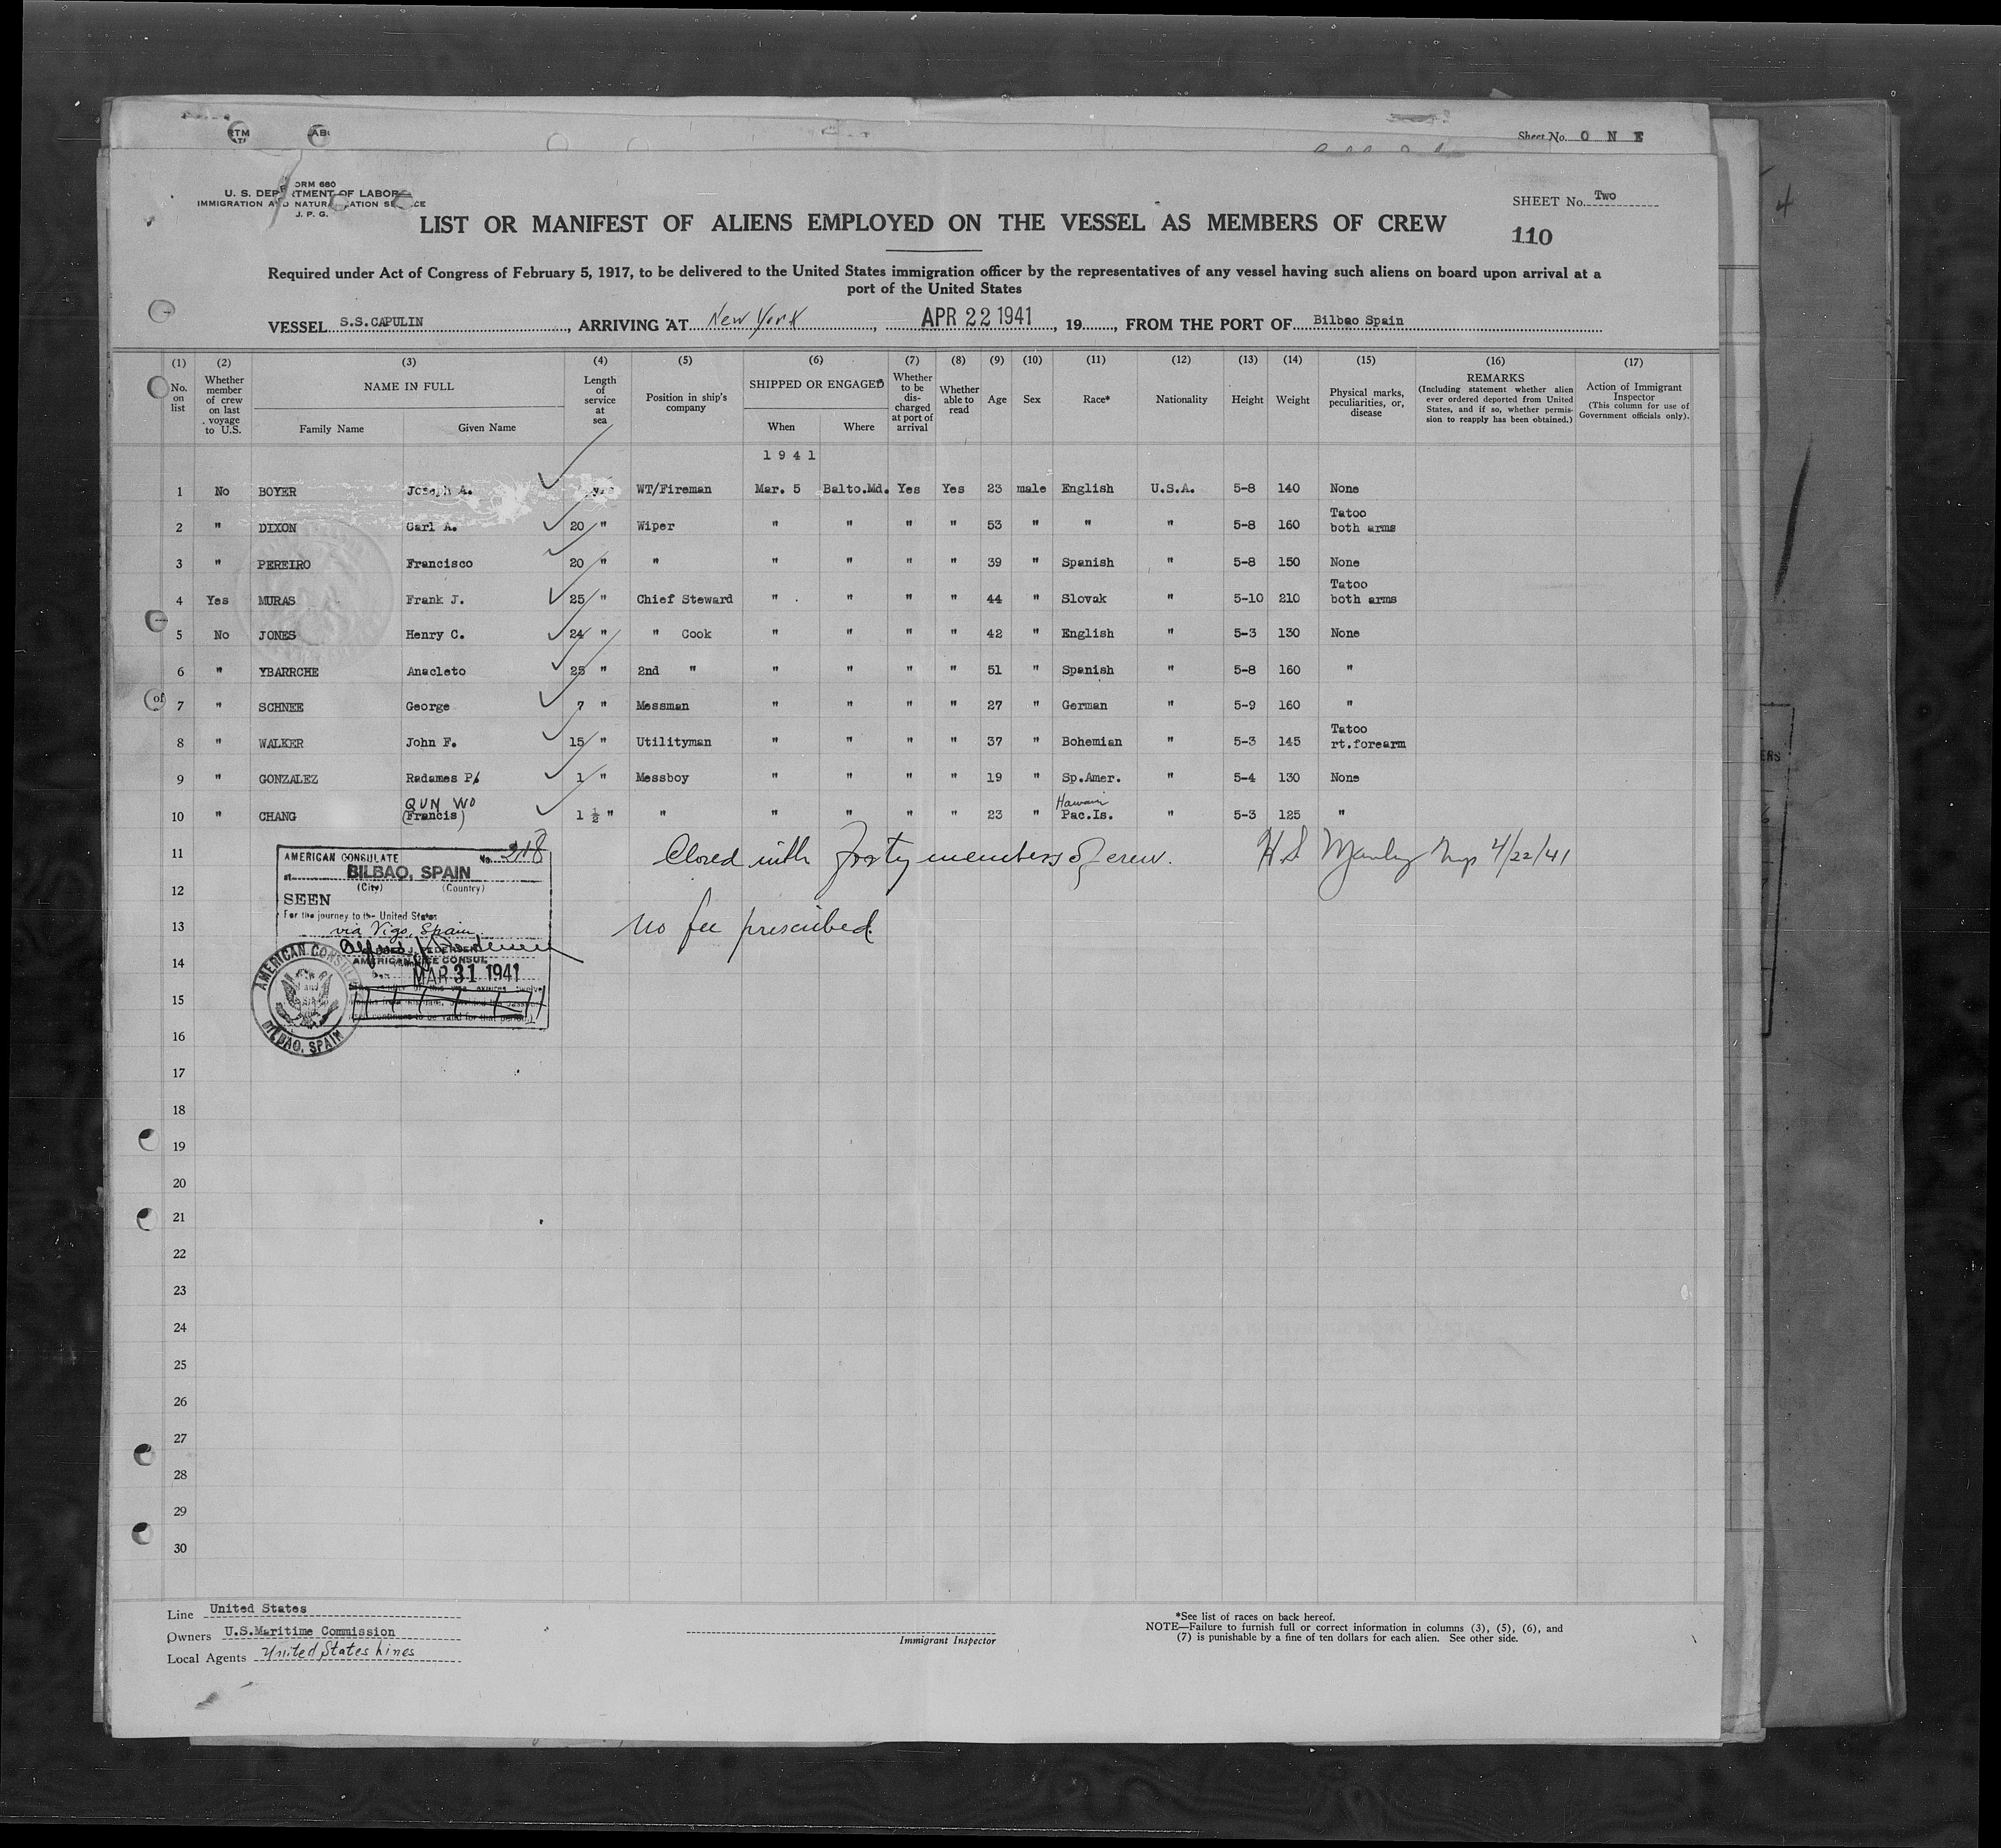 Sheet No. O N E
ORM 680
U. S. DEP TMENT OF LABOR
IMMIGRATION A D NATUR ATION SE CE
J. P. G.
SHEET No. Two
LIST OR MANIFEST OF ALIENS EMPLOYED ON THE VESSEL AS MEMBERS OF CREW
110
Required under Act of Congress of February 5, 1917, to be delivered to the United States immigration officer by the representatives of any vessel having such aliens on board upon arrival at a
port of the United States
VESSEL S.S.CAPULIN, ARRIVING AT New York, APR 22 1941, 19, FROM THE PORT OF Bilbao Spain
(1) (2) (3) (4) (5) (6) (7) (8) (9) (10) (11) (12) (13) (14) (15) (16) (17)
No. on list
Whether member of crew on last voyage to U.S.
NAME IN FULL
Family Name Given Name
Length of service at sea
Position in ship's company
SHIPPED OR ENGAGED
When Where
Whether to be discharged at port of arrival
Whether able to read
Age
Sex
Race*
Nationality
Height
Weight
Physical marks, peculiarities, or, disease
REMARKS
(Including statement whether alien ever ordered deported from United States, and if so, whether permission to reapply has been obtained.)
Action of Immigrant Inspector
(This column for use of Government officials only).
1 9 4 1
1 No BOYER Joseph A. yrs WT/Fireman Mar. 5 Balto.Md. Yes Yes 23 male English U.S.A. 5-8 140 None
2 " DIXON Carl A. 20 " Wiper " " " " 53 " " " 5-8 160 Tatoo both arms
3 " PEREIRO Francisco 20 " " " " " " 39 " Spanish " 5-8 150 None
4 Yes MURAS Frank J. 25 " Chief Steward " " " " 44 " Slovak " 5-10 210 Tatoo both arms
5 No JONES Henry C. 24 " " Cook " " " " 42 " English " 5-3 130 None
6 " YBARRCHE Anacleto 25 " 2nd " " " " " 51 " Spanish " 5-8 160 "
7 " SCHNEE George 7 " Messman " " " " 27 " German " 5-9 160 "
8 " WALKER John F. 15 " Utilityman " " " " 37 " Bohemian " 5-3 145 Tatoo rt.forearm
9 " GONZALEZ Radames P. 1 " Messboy " " " " 19 " Sp.Amer. " 5-4 130 None
10 " CHANG QUN WO (Francis) 1 ½ " " " " " " 23 " Hawain Pac.Is. " 5-3 125 "
11 Closed with forty members of crew. H S Manley Insp 4/22/41
12
13 no fee prescribed.
14
15
16
17
18
19
20
21
22
23
24
25
26
27
28
29
30
AMERICAN CONSULATE No. 218
at BILBAO, SPAIN
(City) (Country)
SEEN
For the journey to the United States
via Vigo, Spain
ALFRED J. PEDERSEN
AMERICAN VICE CONSUL
MAR 31 1941
AMERICAN CONSULATE
BILBAO, SPAIN
Line United States
Owners U.S.Maritime Commission
Local Agents United States Lines
Immigrant Inspector
*See list of races on back hereof.
NOTE—Failure to furnish full or correct information in columns (3), (5), (6), and
(7) is punishable by a fine of ten dollars for each alien. See other side.